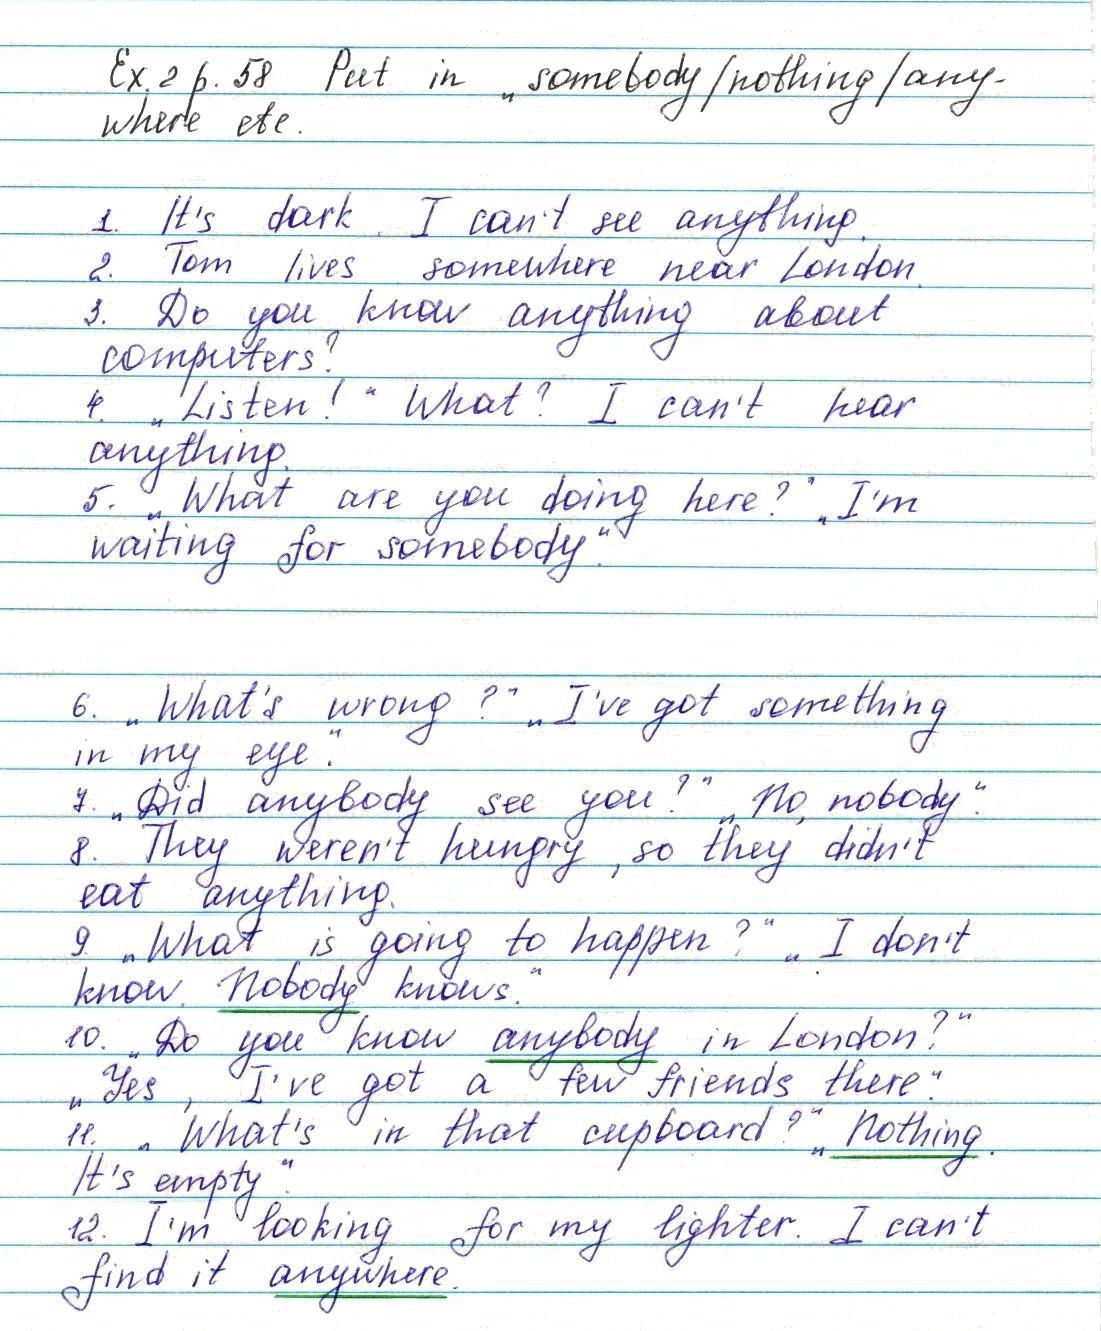 Ex. 2 p. 58 Put in „somebody/nothing/any-
where etc.
1. It's dark. I can't see anything.
2. Tom lives somewhere near London.
3. Do you know anything about
computers?
4. „Listen!“ What? I can't hear
anything.
5. „What are you doing here?“ „I'm
waiting for somebody“.
6. „What's wrong?“ „I've got something
in my eye“.
7. „Did anybody see you?“ „No, nobody“.
8. They weren't hungry, so they didn't
eat anything.
9. „What is going to happen?“ „I don't
know. Nobody knows.“
10. „Do you know anybody in London?“
„Yes, I've got a few friends there“.
11. „What's in that cupboard?“ „Nothing.
It's empty“.
12. I'm looking for my lighter. I can't
find it anywhere.